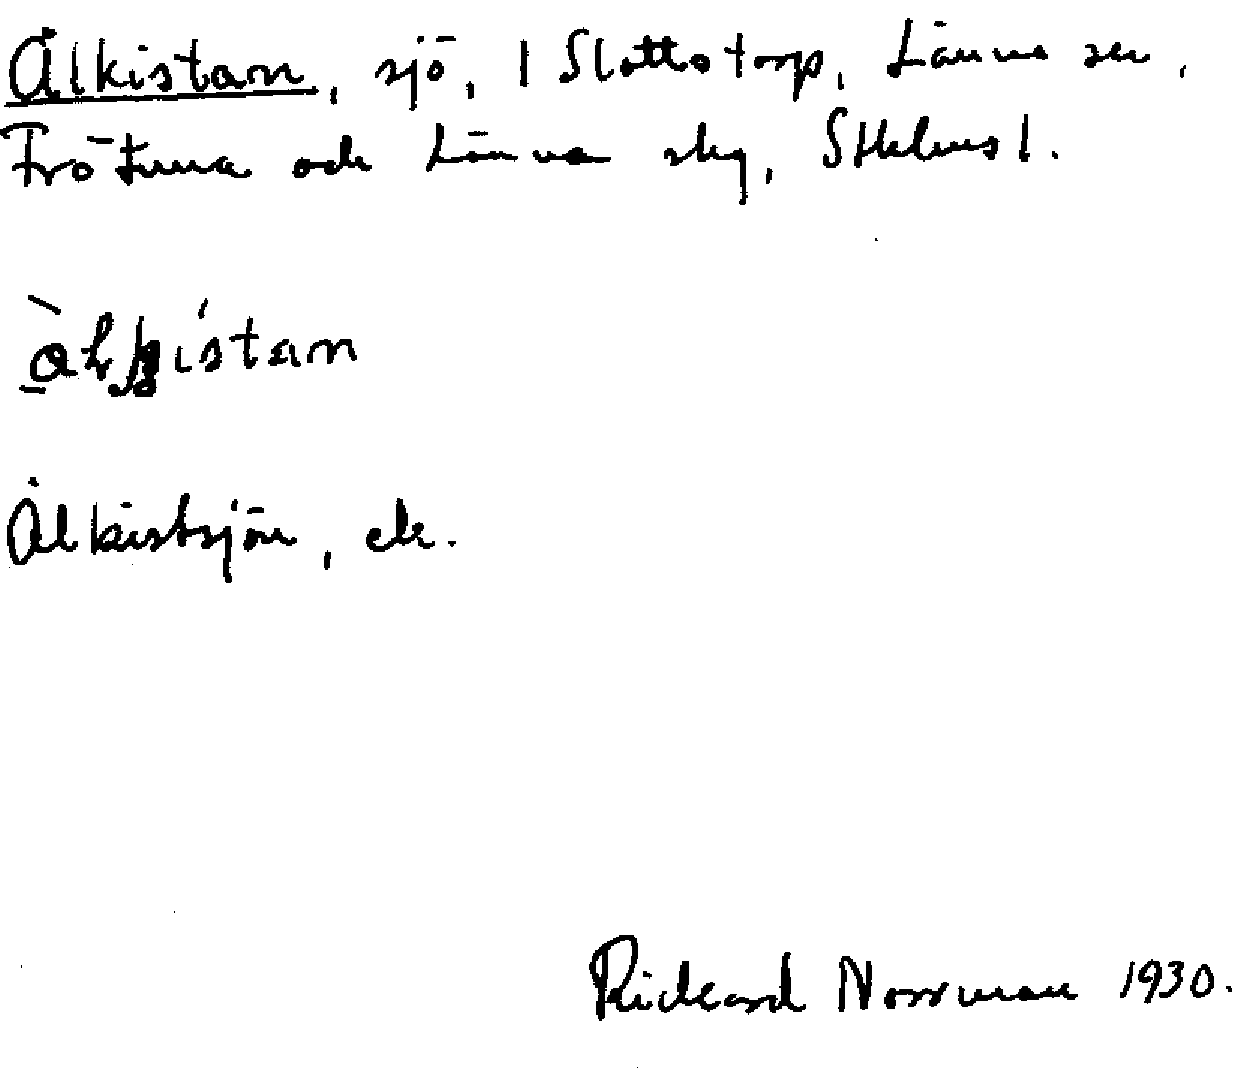 Ålkistan, sjö, l Slottstorp, Länna sn,
Frötuna och Länna skg, Sthlms l.
Ålkistsjön, ek.
Rickard Norrman 1930.